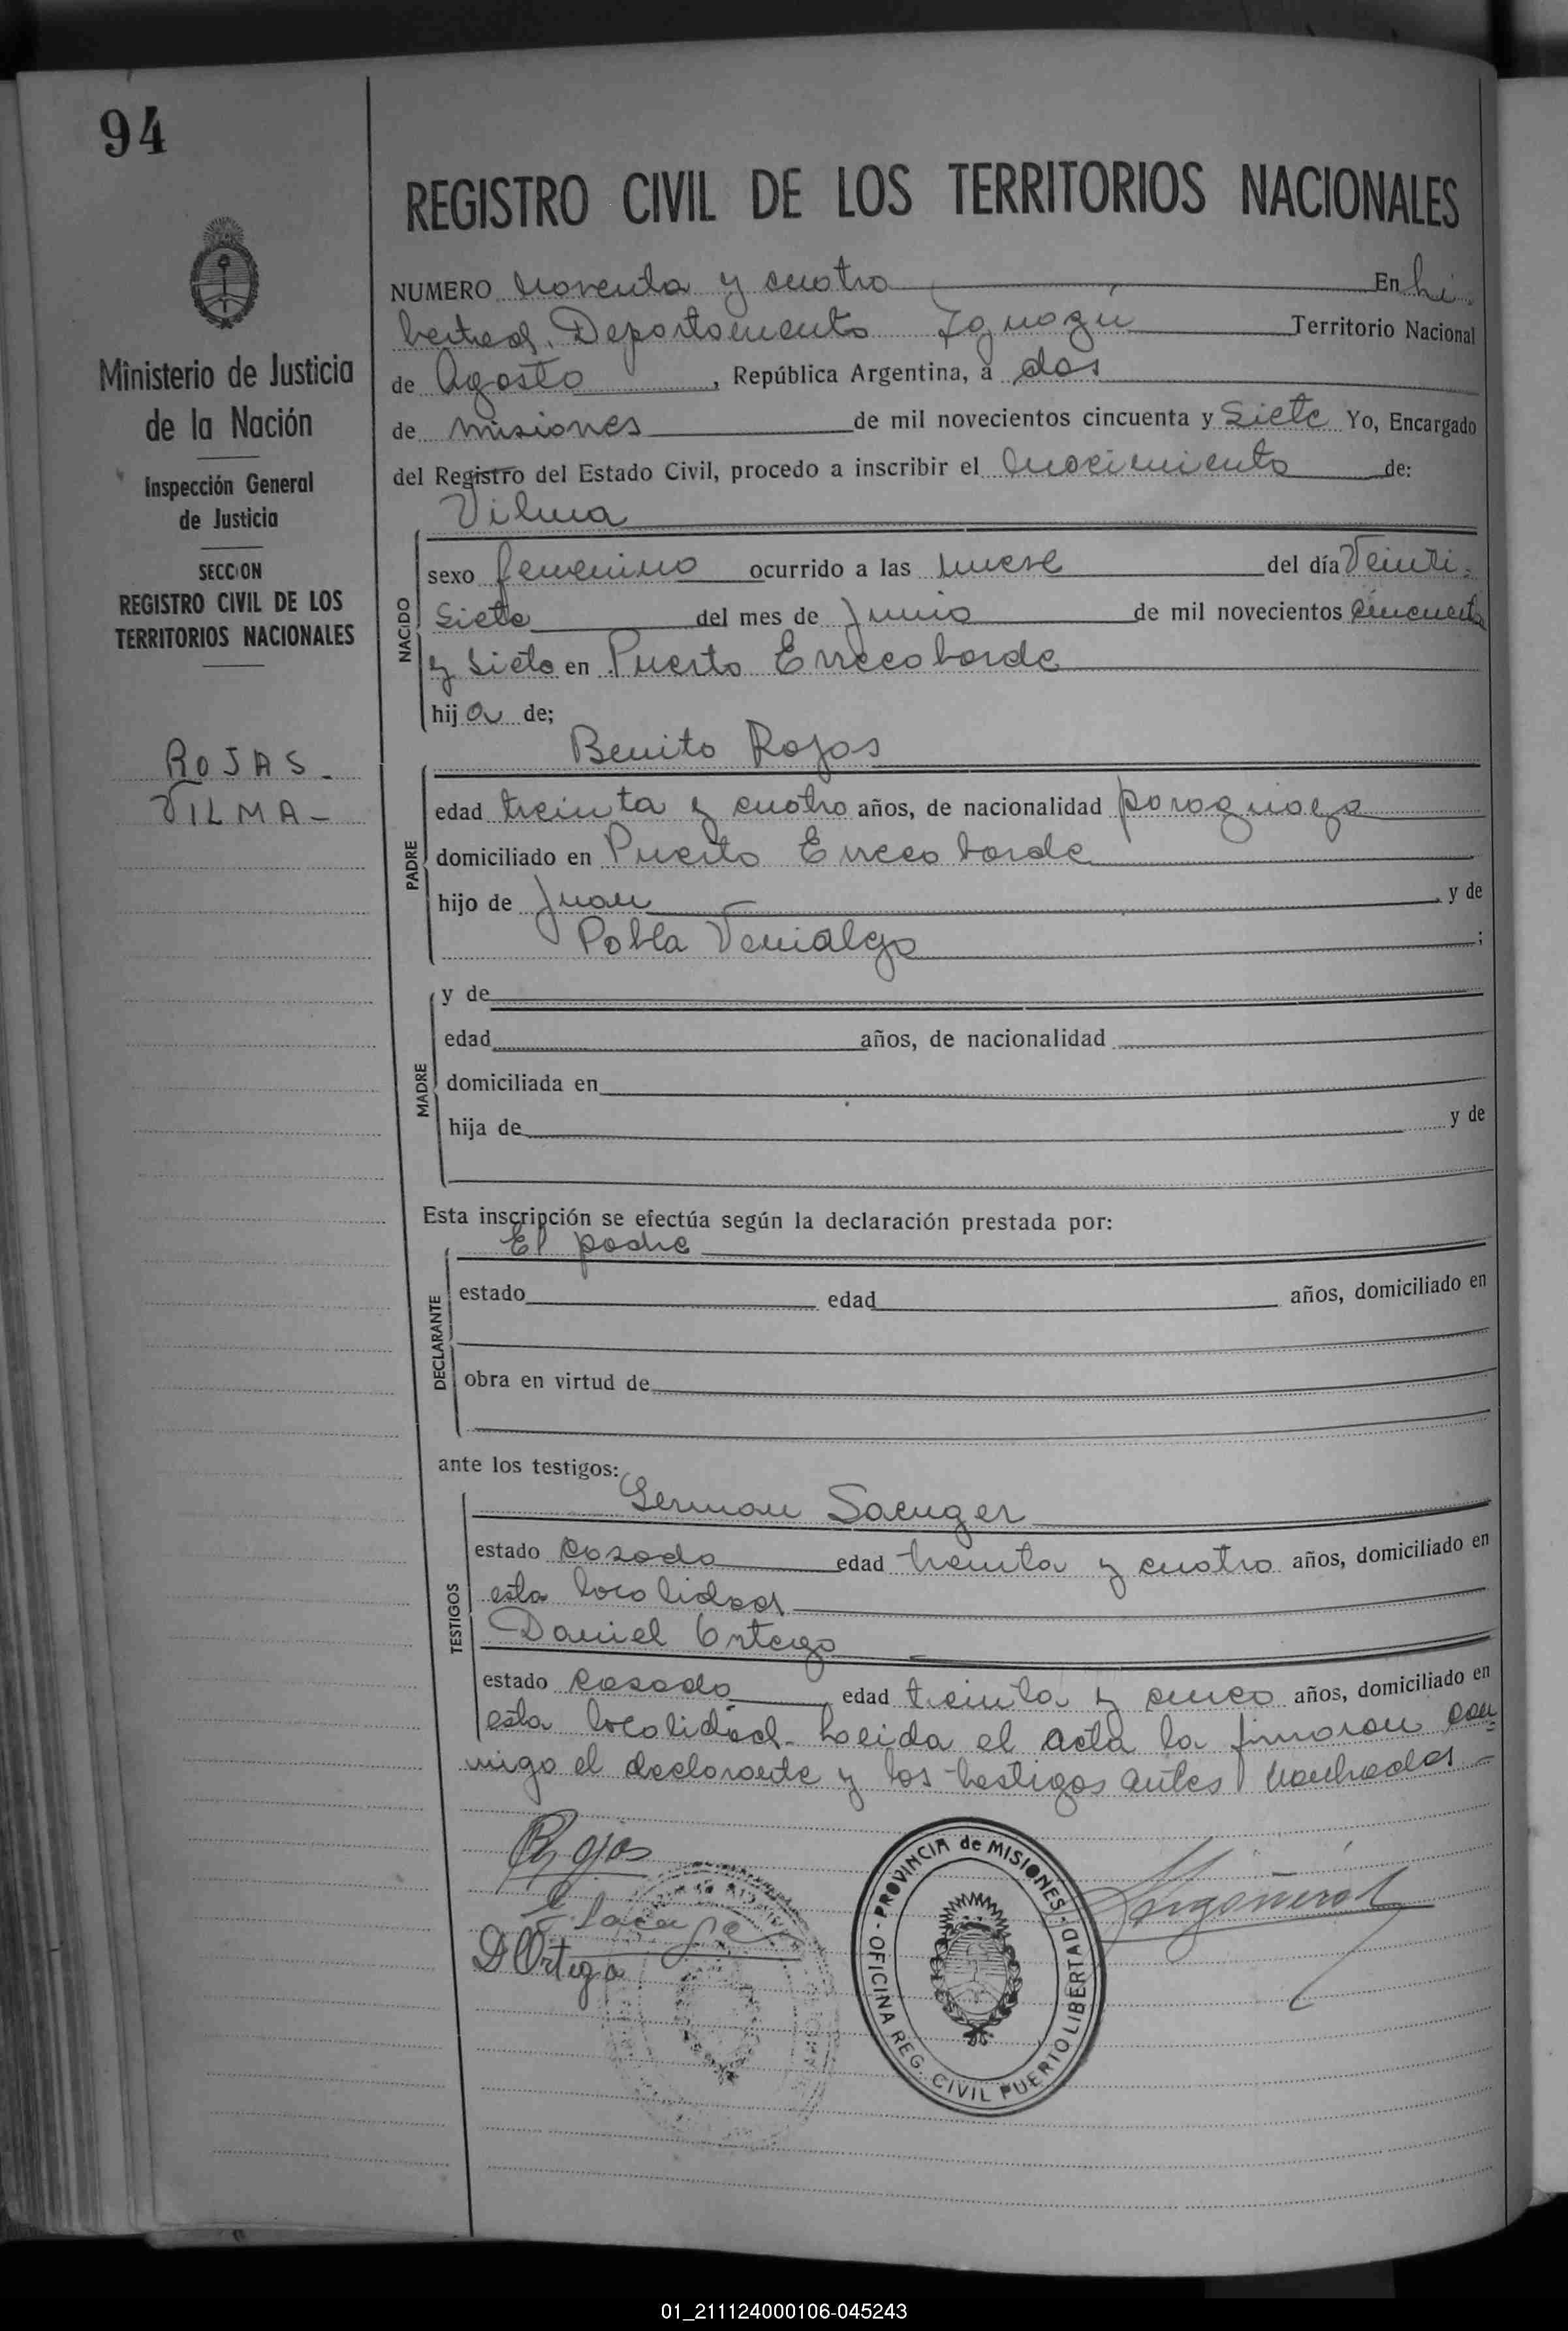 94
REGISTRO CIVIL DE LOS TERRITORIOS NACIONALES
Ministerio de Justicia
de la Nación
Inspección General
de Justicia
SECCION
REGISTRO CIVIL DE LOS
TERRITORIOS NACIONALES
ROJAS -
VILMA -
NUMERO Noventa y cuatro En Li
bertad, Departamento Iguazú Territorio Nacional
de Agosto, República Argentina, a dos
de misiones de mil novecientos cincuenta y siete Yo, Encargado
del Registro del Estado Civil, procedo a inscribir el nacimiento de:
Vilma
NACIDO
sexo femenino ocurrido a las nueve del día Veinti-
siete del mes de Junio de mil novecientos cincuenta
y siete en Puerto Errecaborde
hija de;
Benito Rojas
PADRE
edad treinta y cuatro años, de nacionalidad paraguaya
domiciliado en Puerto Errecaborde
hijo de Juan, y de
Pabla Venialgo;
MADRE
y de
edad años, de nacionalidad
domiciliada en
hija de y de
Esta inscripción se efectúa según la declaración prestada por:
El padre
DECLARANTE
estado edad años, domiciliado en
obra en virtud de
ante los testigos:
German Saenger
TESTIGOS
estado casado edad treinta y cuatro años, domiciliado en
esta localidad
Daniel Ortega
estado casado edad treinta y cinco años, domiciliado en
esta localidad - Leida el acta la firmaron con-
migo el declarante y los testigos antes nombrados -
Rojas
D Ortega
PROVINCIA de MISIONES - OFICINA REG. CIVIL PUERTO LIBERTAD
01_211124000106-045243